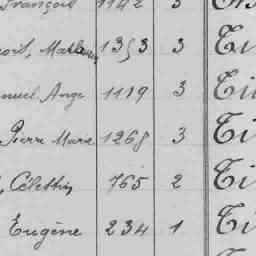 François 1142 3
oit, Mathurin 1353 3 Ti
nuel Ange 1119 3 Ti
Pierre Marie 1268 3 Ti
, Célestin 765 2 Ti
Eugène 234 1 Ti